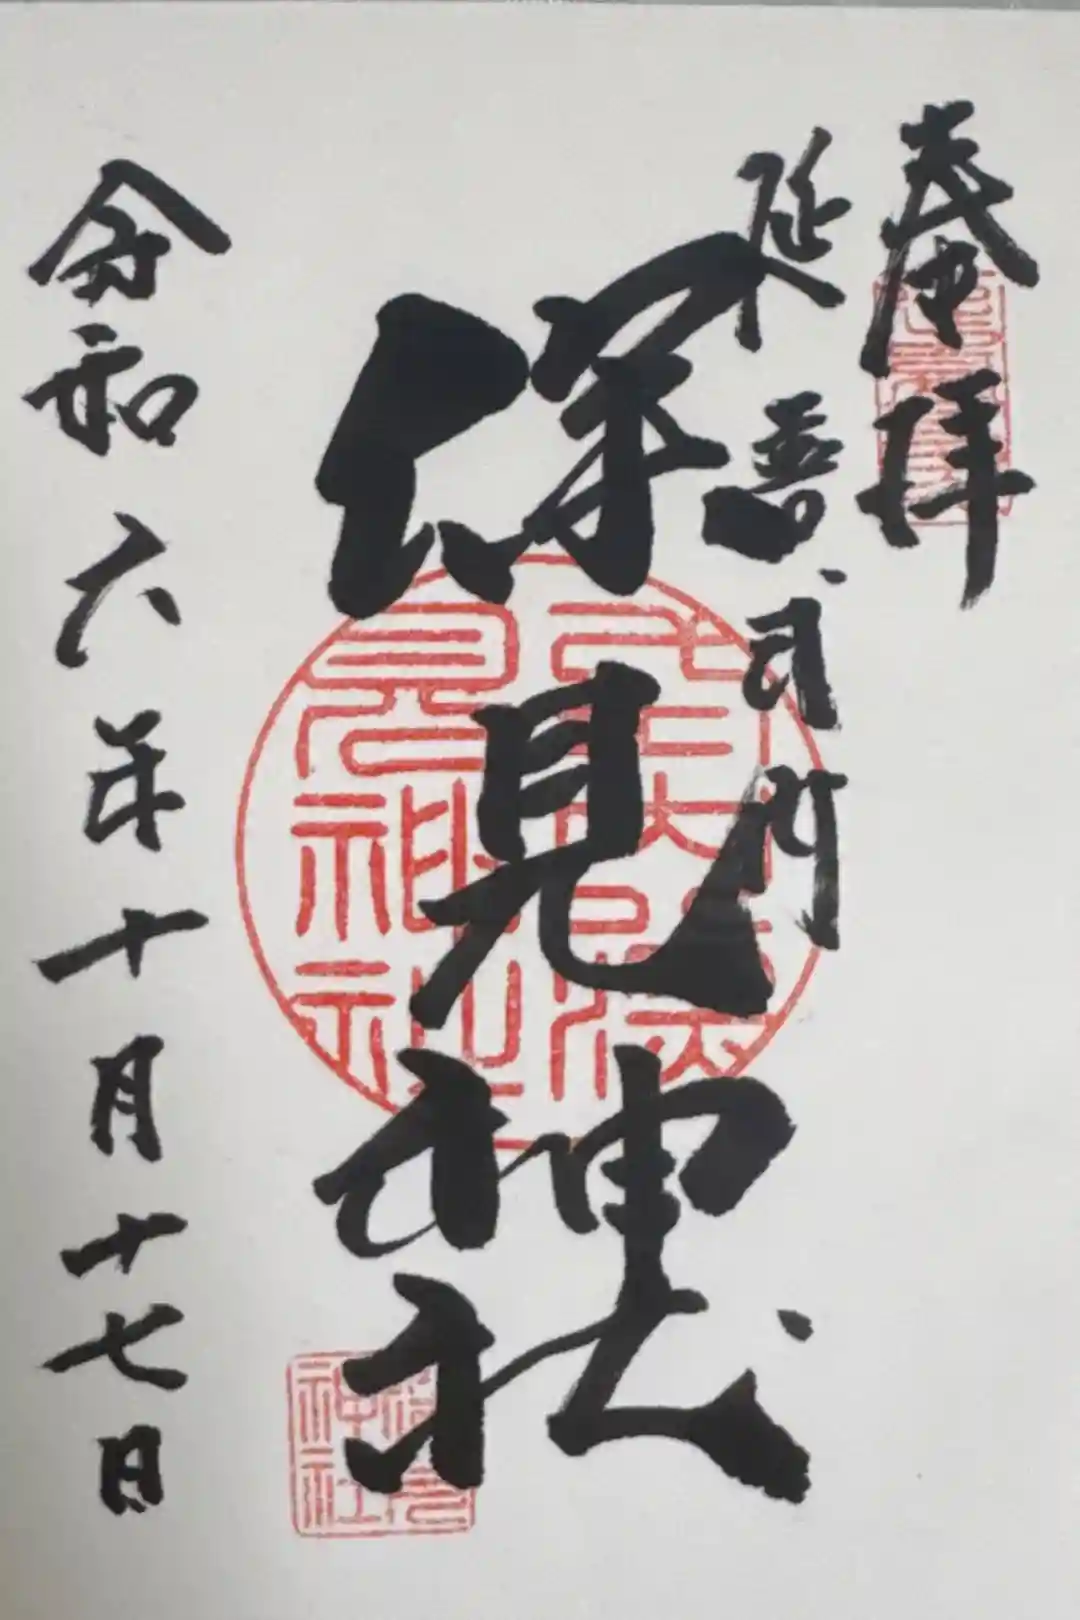 奉拝
延喜式内
深見神社
令和六年十月十七日
深見神社